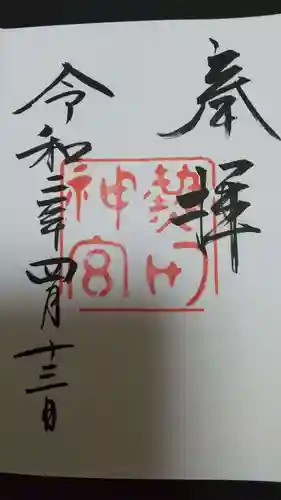 奉拝
熱田神宮
令和三年四月十三日